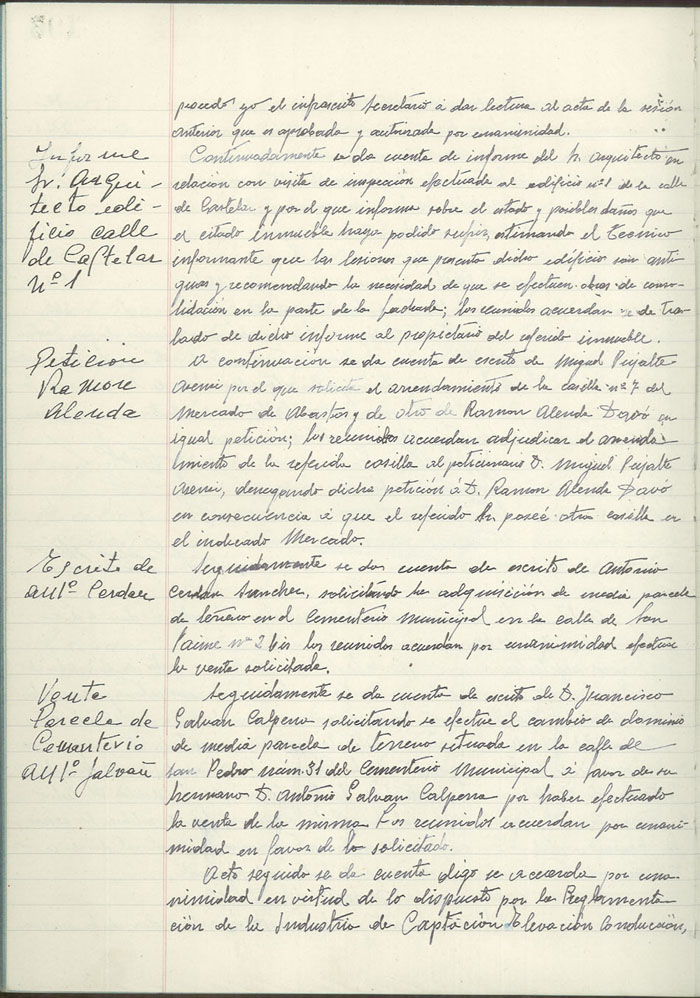 procedo yo el infrascrito Secretario á dar lectura al acta de la sesión
anterior que es aprobada y autorizada por unanimidad.
Informe
Sr. Arqui-
tecto edi-
ficio calle
de Castelar
nº 1
Continuadamente se da cuenta de informe del Sr. Arquitecto en
relación con visita de inspección efectuada al edificio nº 1 de la calle
de Castelar y por el que informa sobre el estado y posibles daños que
el citado inmueble haya podido sufrir, estimando el tecnico
informante que las lesiones que presenta dicho edificio son anti-
guas y recomendando la necesidad de que se efectuen obras de conso-
lidación en la parte de la fachada; los reunidos acuerdan se de tras-
lado de dicho informe al propietario del referido inmueble.
Petición
Ramon
Alenda
A continuación se da cuenta de escrito de Miguel Pujalte
Asensi por el que solicita el arrendamiento de la casilla nº 7 del
Mercado de Abastos y de otro de Ramon Alenda Davó en
igual petición; los reunidos acuerdan adjudicar el arrenda-
miento de la referida casilla al peticionario D. Miguel Pujalte
Asensi, denegando dicha petición á D. Ramon Alenda Davó
en consecuencia á que el referido Sr. poseé otra casilla en
el indicado Mercado.
Escrito de
Antº Cerdan
Seguidamente se da cuenta de escrito de Antonio
Cerdan Sanchez, solicitando la adquisición de media parcela
de terreno en el Cementerio Municipal en la calle de San
Jaime nº 2 bis los reunidos acuerdan por unanimidad efectuar
la venta solicitada.
Venta
Parcela de
Cementerio
Antº Galvañ
Seguidamente se da cuenta de escrito de D. Francisco
Galvan Calpena solicitando se efectue el cambio de dominio
de media parcela de terreno situada en la calle de
San Pedro núm. 31 del Cementerio Municipal á favor de su
hermano D. António Galvan Calpena por haber efectuado
la venta de la misma. Los reunidos acuerdan por unani-
midad en favor de lo solicitado.
Acto seguido se da cuenta digo se acuerda por una-
nimidad en virtud de lo dispuesto por la Reglamenta-
ción de la Industria de Captación Elevación Conducción,